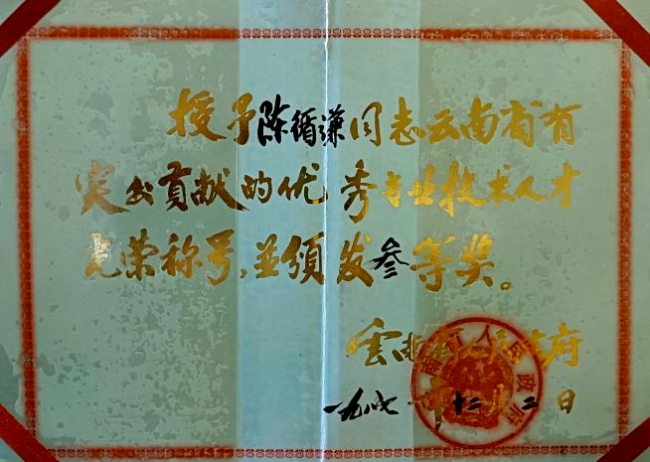 授予陈循谦同志云南省有
突出贡献的优秀专业技术人才
光荣称号,並颁发叁等奖。
雲南省人民政府
一九八七年十二月二日